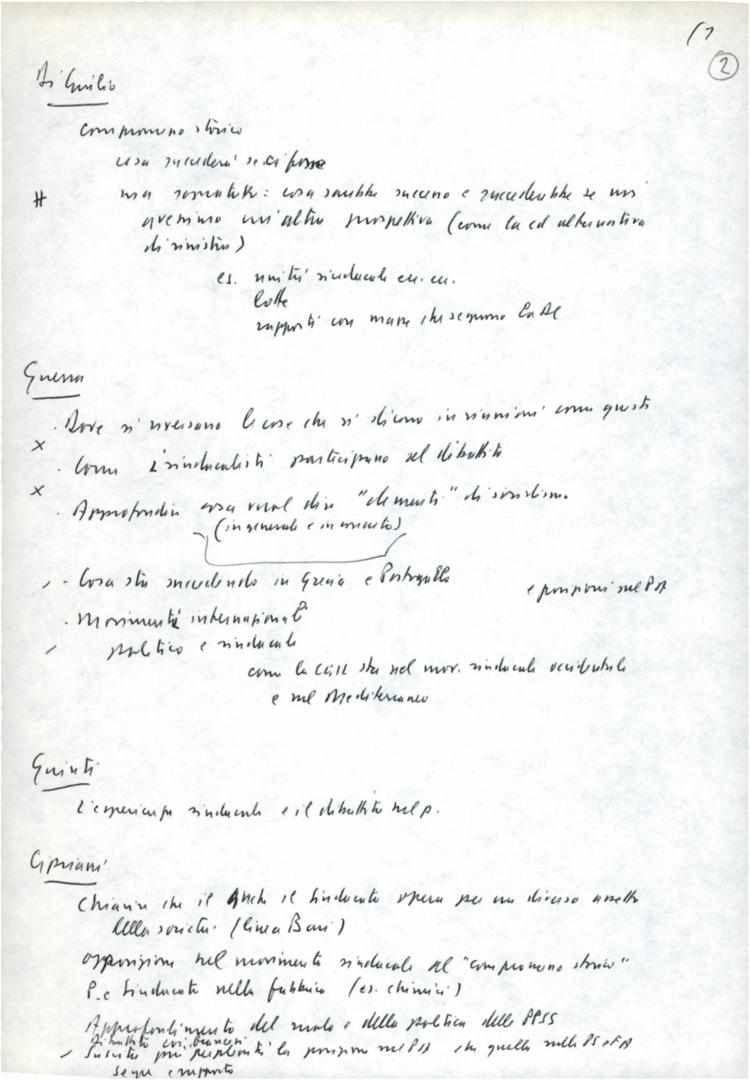 ②
Di Giulio
compromesso storico
cosa succederà se ci fosse
# ma soprattutto: cosa sarebbe successo e succederebbe se noi
avessimo un'altra prospettiva (come la ed alternativa
di sinistra)
es. unità sindacale ecc. ecc.
lotte
rapporti con masse che seguono la DC
Guerra
. Dove si riversano le cose che si dicono in riunioni come questa
x . Come i sindacalisti partecipano al dibattito
x . Approfondire cosa vuol dire "elementi" di socialismo.
(in generale e in concreto)
- Cosa sta succedendo in Grecia e Portogallo e posizioni sul
. Movimenti internazionali
politico e sindacale
come la CGIL sta nel mov. sindacale occidentale
e nel Mediterraneo
Guinti
L'esperienza sindacale e il dibattito nel p.
Cipriani
Chiarire che il anche il sindacato opera per un diverso assetto
della società (linea Bari)
opposizione nel movimento sindacale al "compromesso storico"
P. e sindacato nella fabbrica (es. chimici)
Approfondimento del ruolo e della politica delle PPSS
Dibattito
Suscita più perplessità la posizione sul che quella sulle PS e FA
segue rapporto